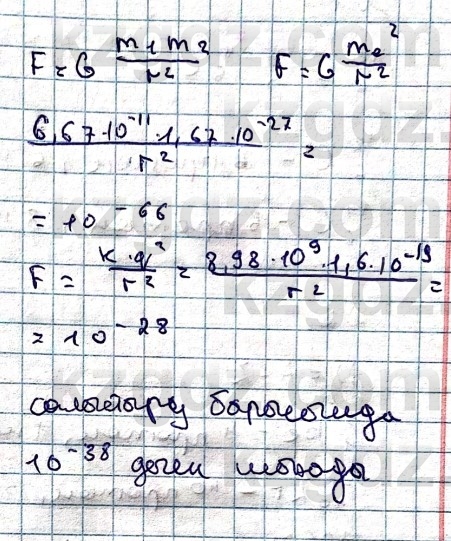 F = G m₁m₂/r² F = G mₑ²/r²
6,67·10⁻¹¹·1,67·10⁻²⁷/r² =
= 10⁻⁶⁶
F = k·q²/r² = 8,98·10⁹·1,6·10⁻¹⁹/r² =
= 10⁻²⁸
салыстыру барысында
10⁻³⁸ деген шығады